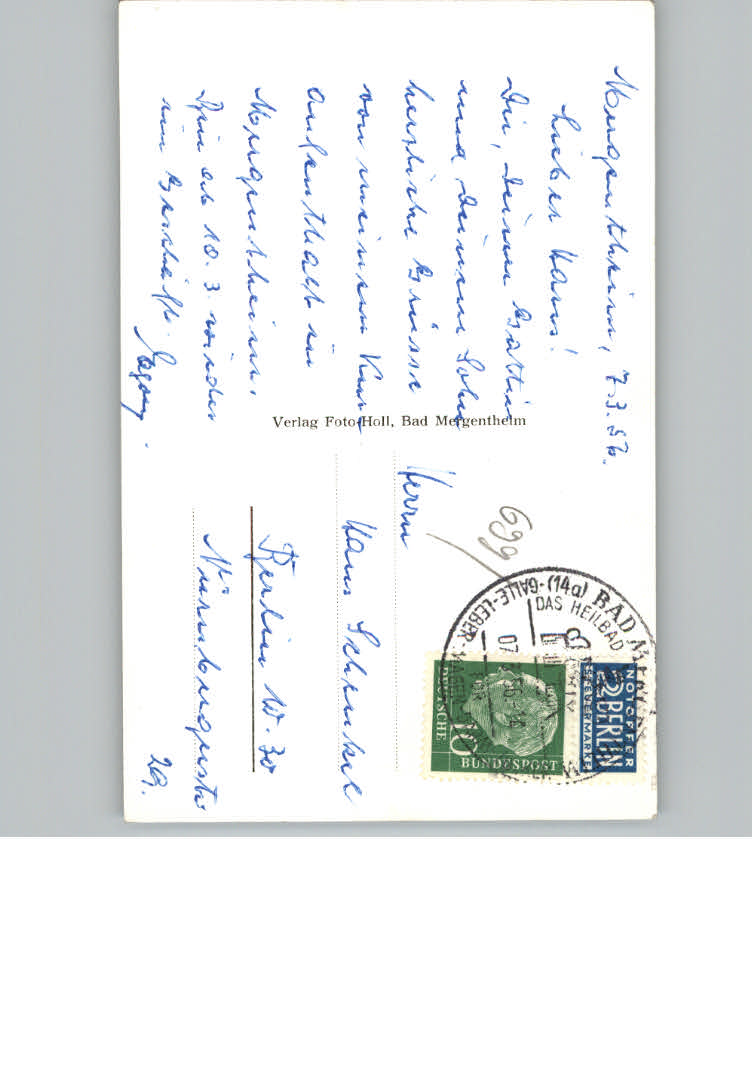 Mergentheim, 7.3.56.
Lieber Hans!
Dir, Deiner Gattin
und Deinem Sohn
herzliche Grüsse
von meinem Kur-
aufenthalt in
Mergentheim.
Bin ab 10.3. wieder
im Geschäft.
Verlag Foto-Holl, Bad Mergentheim
699
Herrn
Hans Schenkel
Berlin W. 30
Nürnbergerstr
29.
(14a) BAD MERGENTHEIM
DAS HEILBAD
GALLE-LEBER-MAGEN
DEUTSCHE
BUNDESPOST
10
NOTOPFER
2 BERLIN
STEUERMARKE